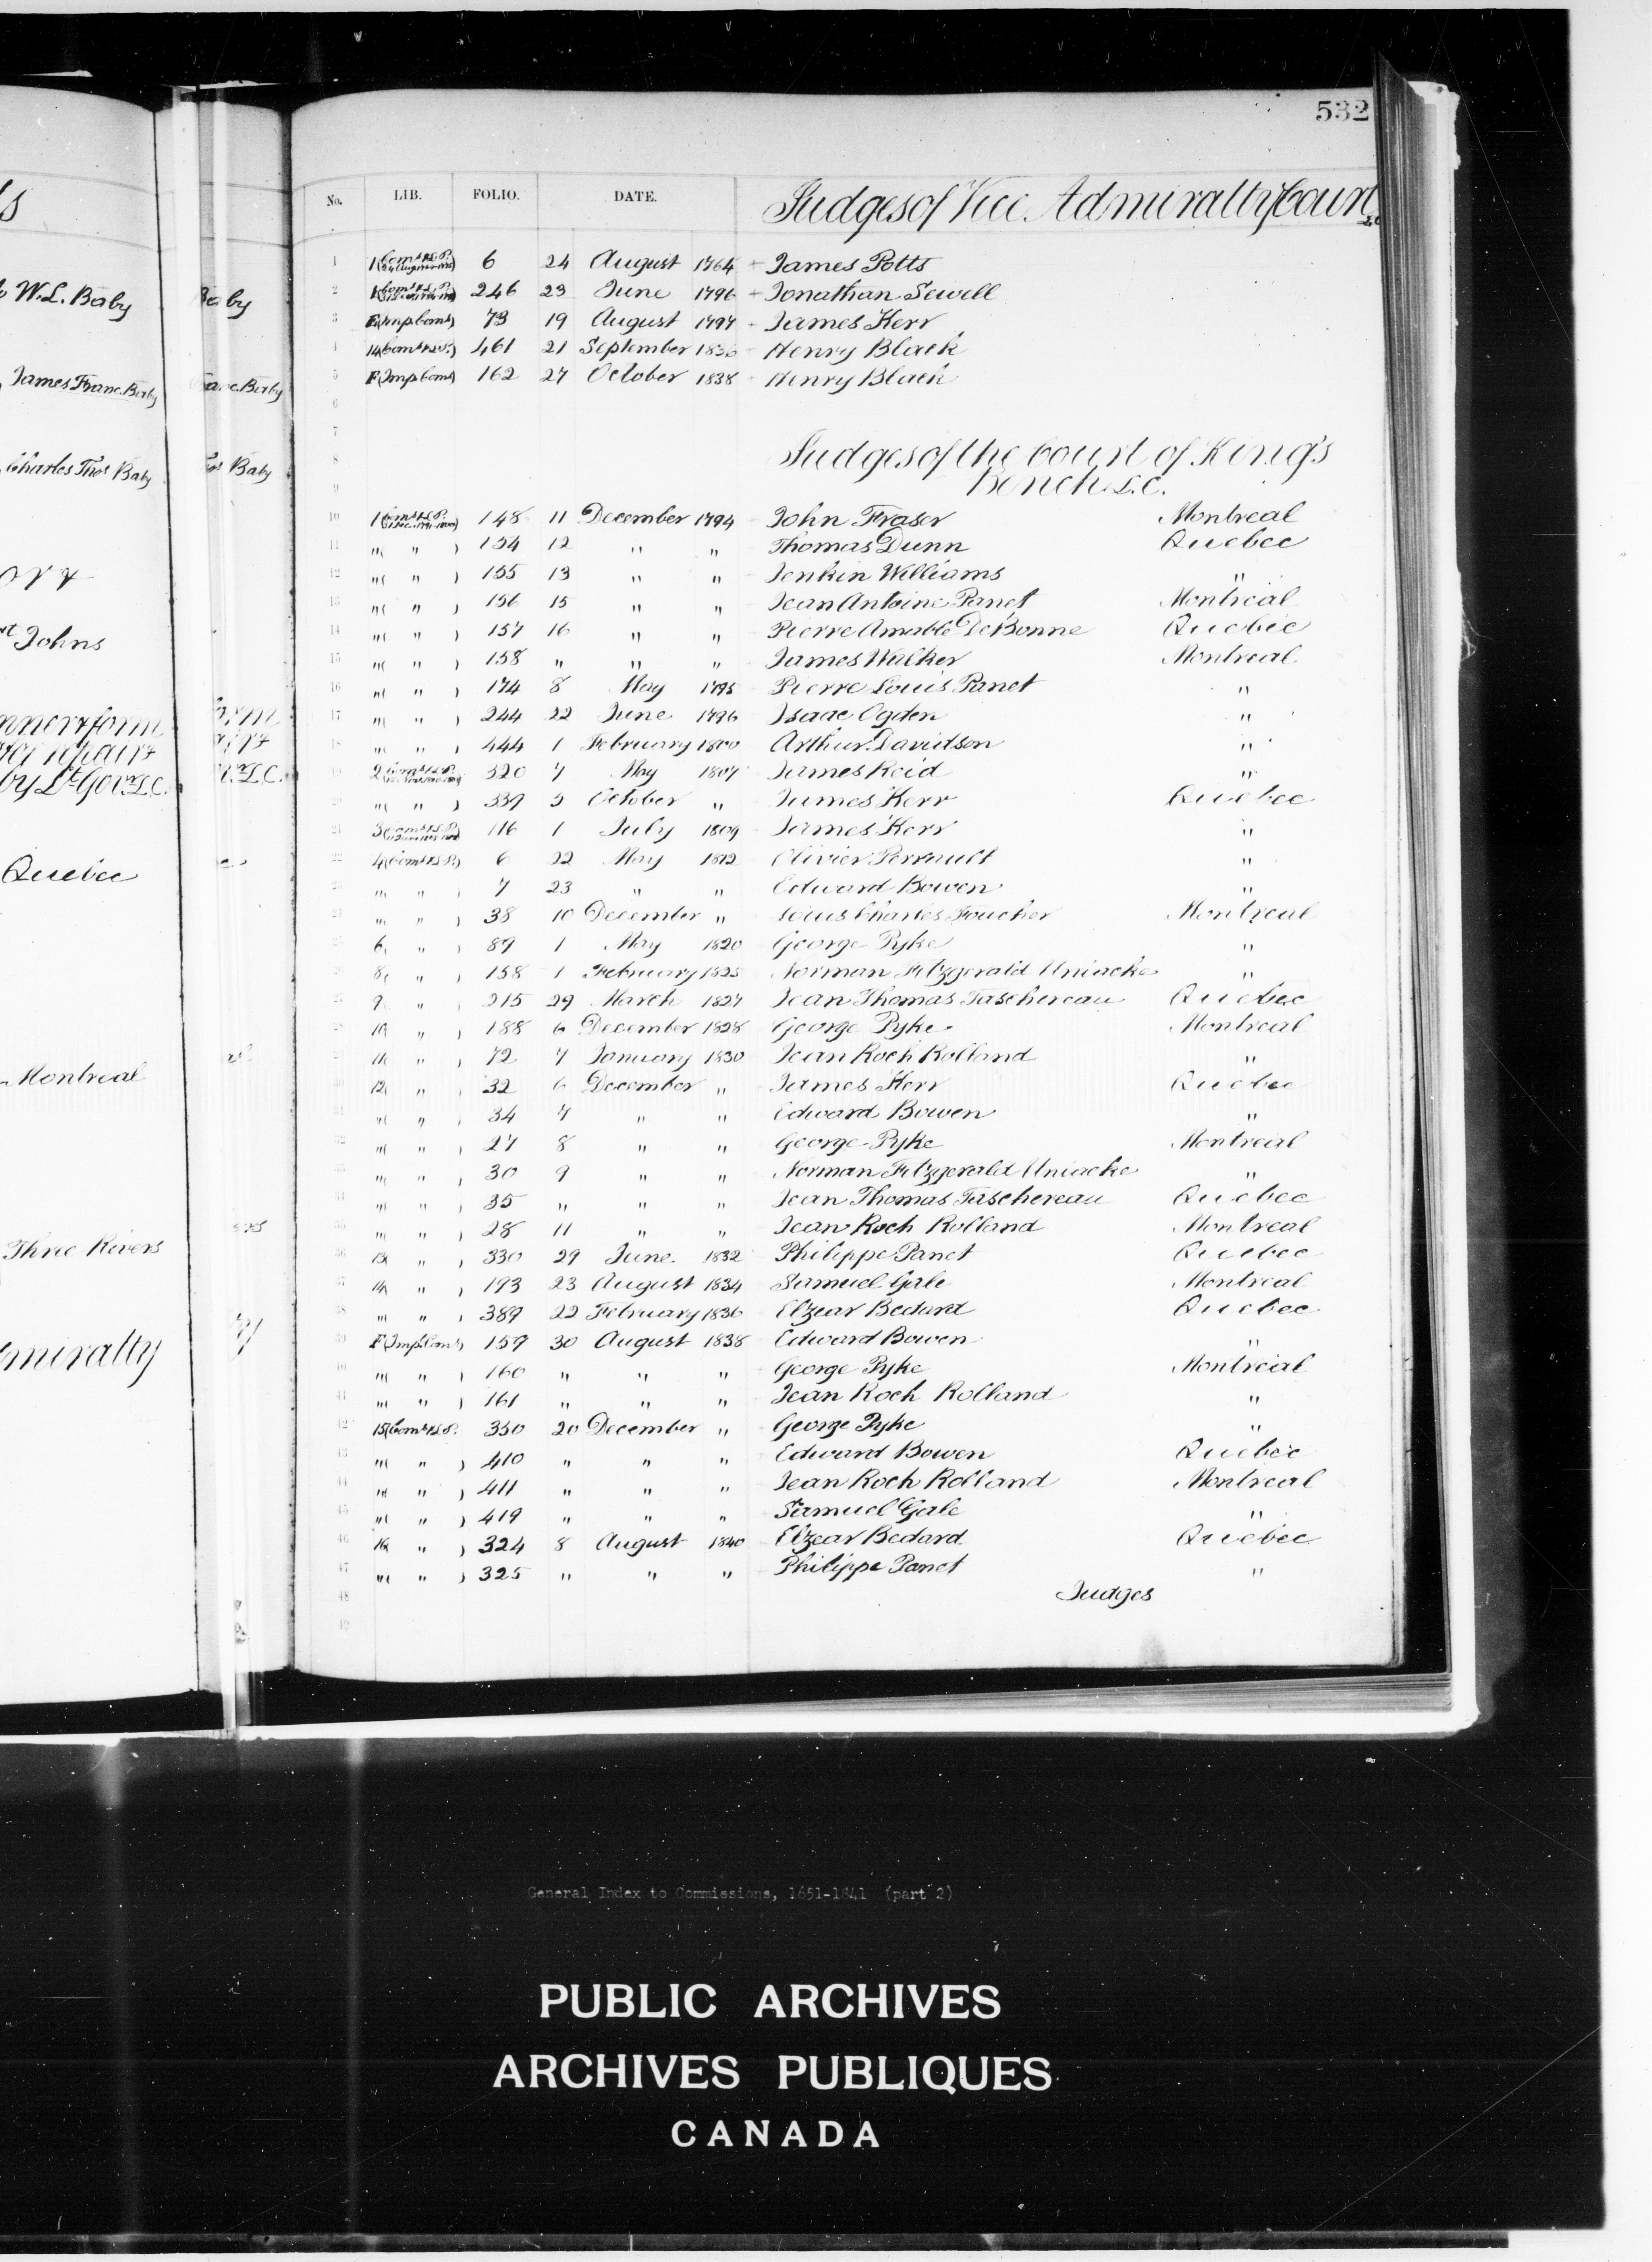 532
No. LIB. FOLIO. DATE. Judges of Vice Admiralty Court
1 6 24 August 1764 James Potts
2 246 23 June 1796 Jonathan Sewell
3 F (Imp. Coms) 73 19 August 1797 James Kerr
4 14 461 21 September 1836 Henry Black
5 F (Imp Coms) 162 27 October 1838 Henry Black
6
7
8 Judges of the Court of King's
9 Bench L.C.
10 1 148 11 December 1794 John Fraser Montreal
11 " ( " ) 154 12 " " Thomas Dunn Quebec
12 " ( " ) 155 13 " " Jenkin Williams "
13 " ( " ) 156 15 " " Jean Antoine Panet Montreal
14 " ( " ) 157 16 " " Pierre Amable De Bonne Quebec
15 " ( " ) 158 " " " James Walker Montreal
16 " ( " ) 174 8 May 1795 Pierre Louis Panet "
17 " ( " ) 244 22 June 1796 Isaac Ogden "
18 " ( " ) 444 1 February 1800 Arthur Davidson "
19 2 320 7 May 1807 James Reid "
20 " ( " ) 339 3 October " James Kerr Quebec
21 3 116 1 July 1809 James Kerr "
22 4 6 22 May 1812 Olivier Perrault "
23 " " 7 23 " " Edward Bowen "
24 " " 38 10 December " Louis Charles Foucher Montreal
25 6 ( " ) 89 1 May 1820 George Pyke "
26 8 ( " ) 158 1 February 1825 Norman Fitzgerald Uniacke "
27 9 ( " ) 215 29 March 1827 Jean Thomas Taschereau Quebec
28 10 ( " ) 188 6 December 1828 George Pyke Montreal
29 11 ( " ) 72 7 January 1830 Jean Roch Rolland "
30 12 ( " ) 32 6 December " James Kerr Quebec
31 " ( " ) 34 7 " " Edward Bowen "
32 " ( " ) 27 8 " " George Pyke Montreal
33 " ( " ) 30 9 " " Norman Fitzgerald Uniacke "
34 " ( " ) 35 " " " Jean Thomas Taschereau Quebec
35 " ( " ) 28 11 " " Jean Roch Rolland Montreal
36 13 ( " ) 330 29 June 1832 Philippe Panet Quebec
37 14 ( " ) 193 23 August 1834 Samuel Gale Montreal
38 " ( " ) 389 22 February 1836 Elzear Bedard Quebec
39 F (Imp. Coms) 159 30 August 1838 Edward Bowen "
40 " ( " ) 160 " " " George Pyke Montreal
41 " ( " ) 161 " " " Jean Roch Rolland "
42 15 350 20 December " George Pyke "
43 " ( " ) 410 " " " Edward Bowen Quebec
44 " ( " ) 411 " " " Jean Roch Rolland Montreal
45 " ( " ) 419 " " " Samuel Gale "
46 16 ( " ) 324 8 August 1840 Elzear Bedard Quebec
47 " ( " ) 325 " " " Philippe Panet "
48 Judges
49
W. L. Baby
James Franc. Baby
Charles Thos Baby
Johns
repairs
by Lt Gov. L.C.
Quebec
Montreal
Three Rivers
miralty
General Index to Commissions, 1651-1841 (part 2)
PUBLIC ARCHIVES
ARCHIVES PUBLIQUES
CANADA